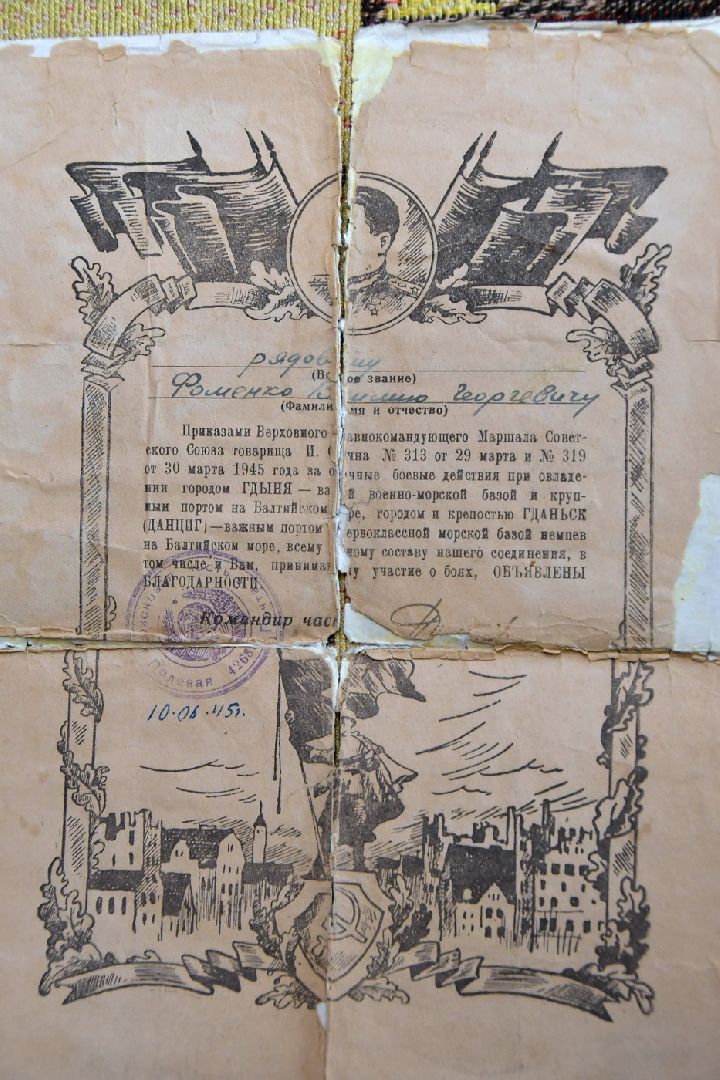 рядов му
(Во ое звание)
Фоменко Георгевичу
(Фамили мя и отчество)
Приказами Верховного авнокомандующего Маршала Совет-
ского Союза товарища И. С ина № 313 от 29 марта и № 319
от 30 марта 1945 года за о ичные боевые действия при овладе-
нии городом ГДЫНЯ — ва й военно-морской базой и круп-
ным портом на Балтийском ре, городом и крепостью ГДАНЬСК
(ДАНЦИГ) — важным портом ервоклассной морской базой немцев
на Балтийском море, всему ному составу нашего соединения, в
том числе и Вам, принимав у участие о боях, ОБЪЯВЛЕНЫ
БЛАГОДАРНОСТИ
Командир час
Полевая
10.06.45г.